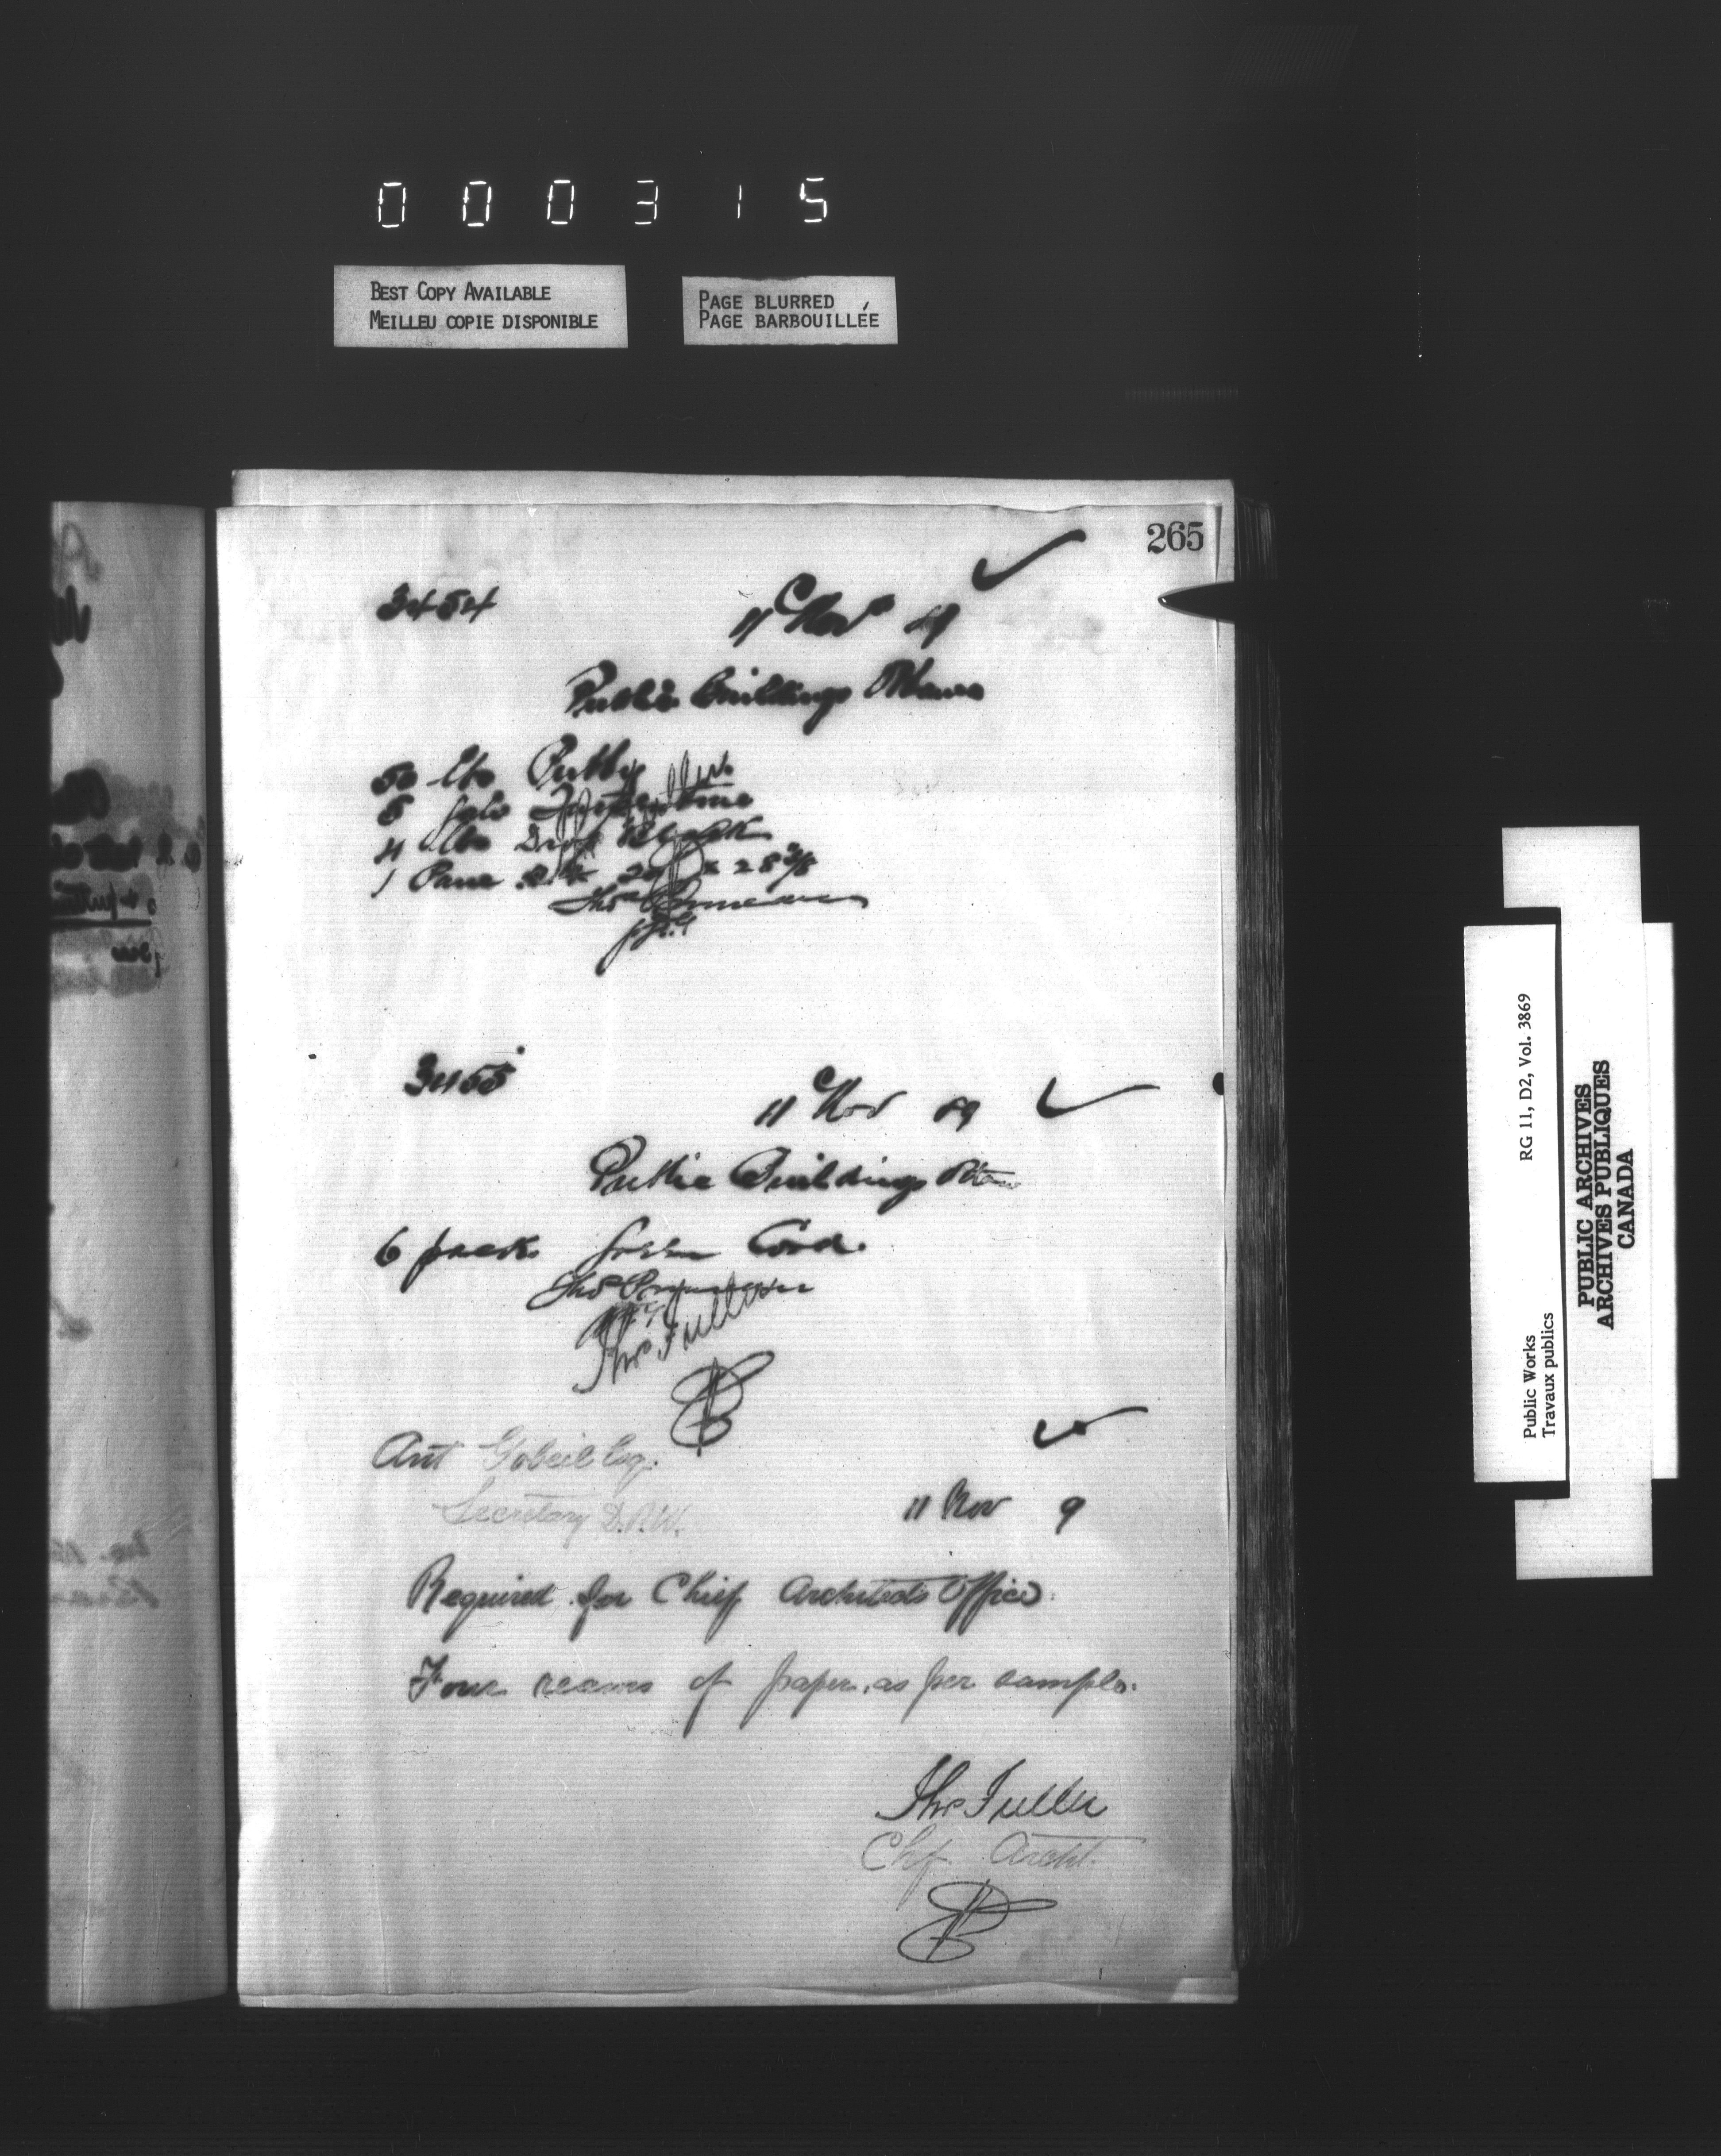 000315
BEST COPY AVAILABLE
MEILLEU COPIE DISPONIBLE
PAGE BLURRED
PAGE BARBOUILLÉE
265
3454
11 Nov 89
Public Buildings Ottawa
50 lbs Putty
5 Gals Turpentine
4 lbs Drop Black
1 Pane
Thos
3455
11 Nov 89
Public Buildings Ottawa
6 packs Green Cord.
Thos
Thos Fuller
Ant Gobeil Esq.
Secretary D.P.W.
11 Nov 9
Required for Chief Architects Office.
Four reams of paper, as per sample.
Thos Fuller
Chf. Archt.
RG 11, D2, Vol. 3869
Public Works
Travaux publics
PUBLIC ARCHIVES
ARCHIVES PUBLIQUES
CANADA